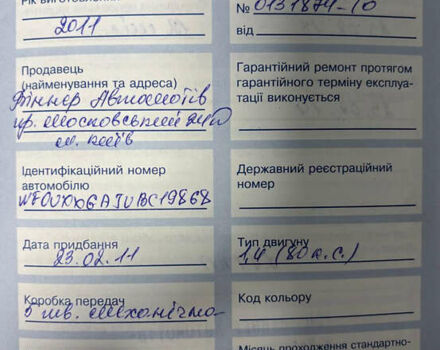 Рік виготовлення
2011
№ 0131874-10
від
Продавець
(найменування та адреса)
Віннер Автомотів
пр. Московський 24
м. Київ
Гарантійний ремонт протягом
гарантійного терміну експлуа-
тації виконується
Ідентифікаційний номер
автомобілю
WF0UXXGAJUBC19868
Державний реєстраційний
номер
Дата придбання
23.02.11
Тип двигуну
1,4 (80 к.с.)
Коробка передач
5 шв. механічна
Код кольору
Місяць проходження стандартно-